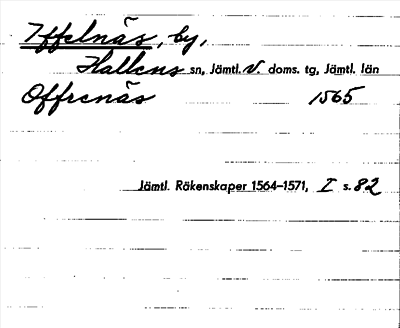 Yffelnäs, by,
Hallens sn, Jämtl. V. doms. tg, Jämtl. län
Offrenäs 1565
Jämtl. Räkenskaper 1564–1571, I s. 82